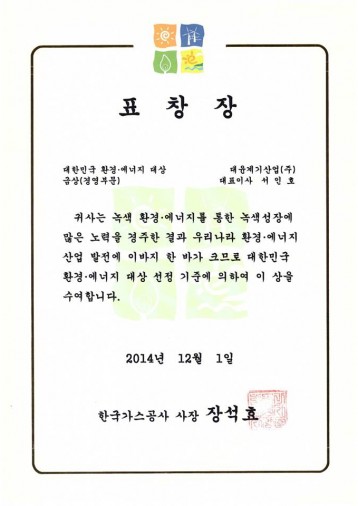 표 창 장
대한민국 환경·에너지 대상 대윤계기산업(주)
금상(경영부문) 대표이사 서 인 호
귀사는 녹색 환경·에너지를 통한 녹색성장에
많은 노력을 경주한 결과 우리나라 환경·에너지
산업 발전에 이바지 한 바가 크므로 대한민국
환경·에너지 대상 선정 기준에 의하여 이 상을
수여합니다.
2014년 12월 1일
한국가스공사 사장 장석효